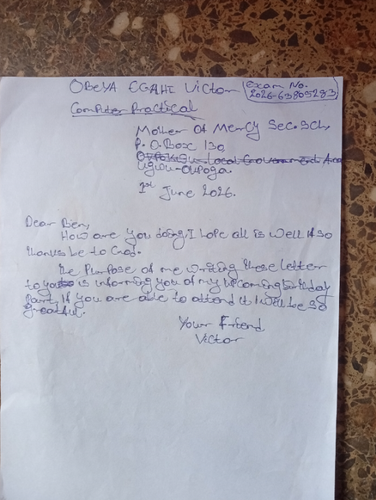 OBEYA EGAHI Victor Exam No.
2026-65805283
Computer Practical
Mother of Mercy Sec. Sch,
P.O. Box 130
Ugwu-Ovpoga
1st June 2026.
Dear Ben,
How are you doing, I hope all is well if so
thanks be to God.
The Purpose of me writing these letter
to you is informing you of my upcoming birthday
Party, If you are able to attend it will be so
greatful.
Your Friend
Victor